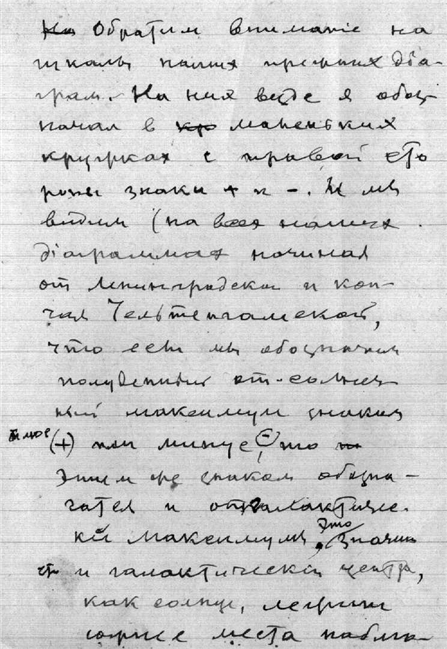 Обратим вниманіе на
шкалы наших прежних діа-
грам. На них везде я обоз
начал в маленьких
кружках с правой сто
роны знаки + и -. И мы
видим (на всех наших
діаграммах начиная
от Ленинградской и кон-
чая Чельтенгамской,
что если мы обозначим
полуденный от-солнеч
ный максимум знаком
плюс (+) или минус (-), то
этим же знаком обозна-
чатся и отгалактиче.
кій максимум, это значит
что и галактическій центр,
как солнце, лежит
южнее места наблю-